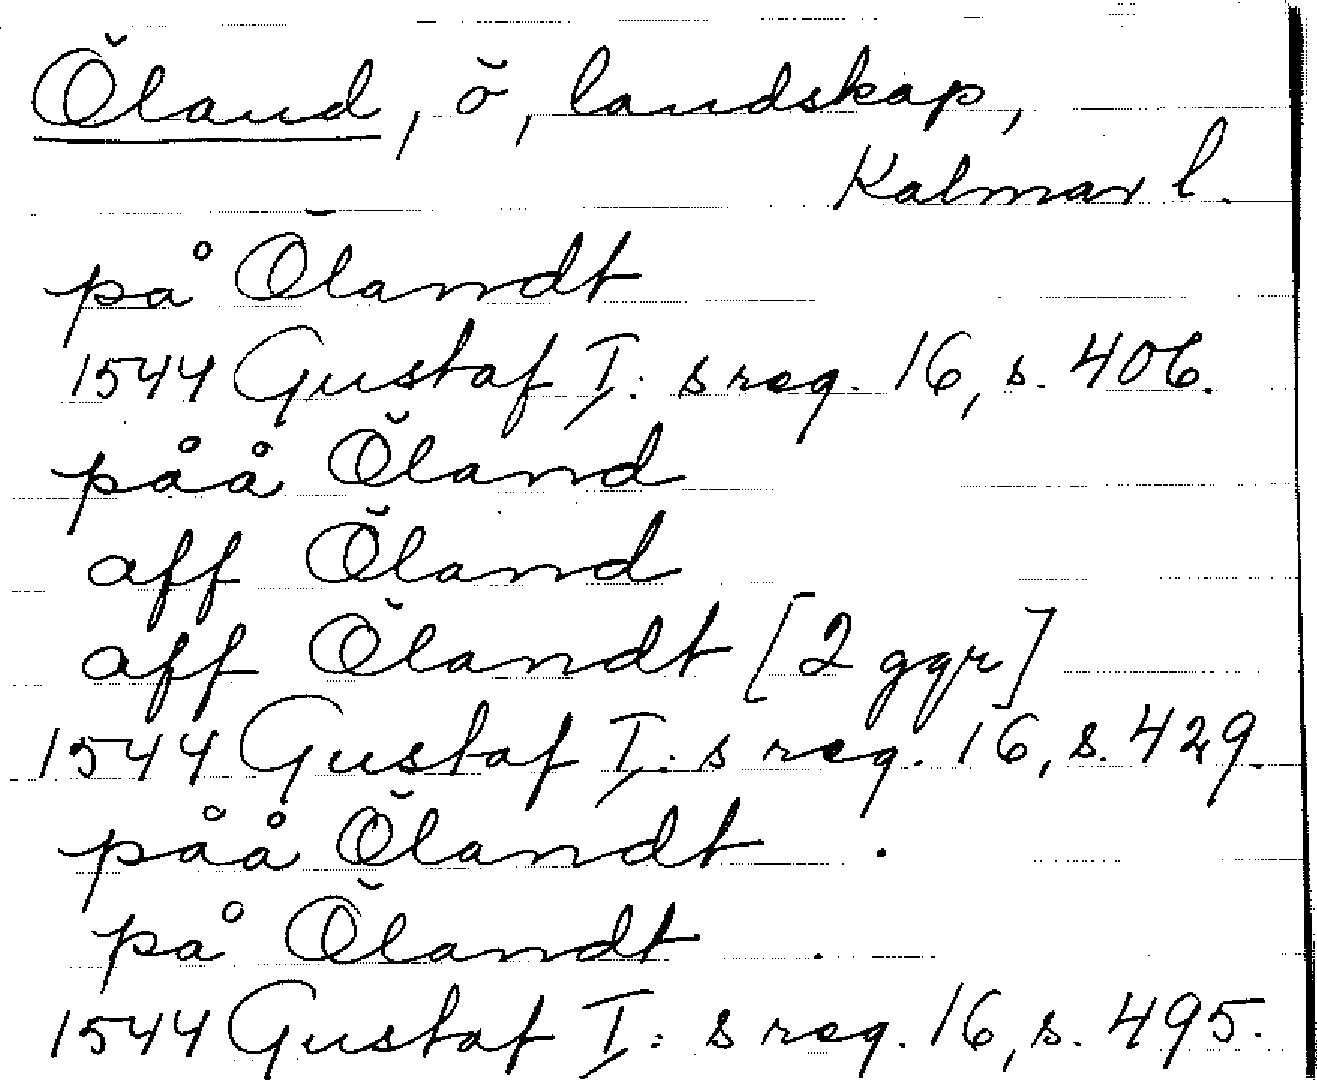 Öland, ö, landskap,
Kalmar l.
på Ölandt
1544 Gustaf I: s reg. 16, s. 406.
påå Öland
aff Öland
aff Ölandt [2 ggr]
1544 Gustaf I: s reg. 16, s. 429.
påå Ölandt
på Ölandt
1544 Gustaf I: s reg. 16, s. 495.